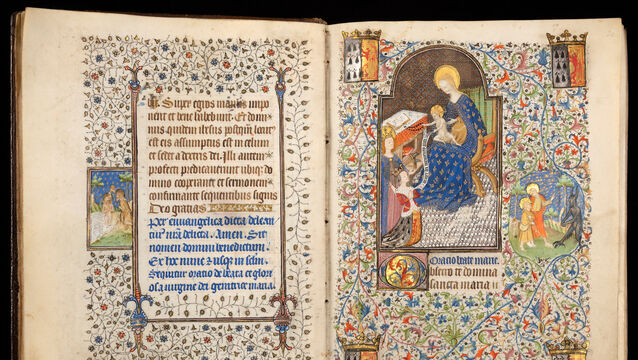 Super egros manus impo
nent et bene habebunt. Et domi
nus quidem ihesus postquam locut
est eis assumptus est in celum
et sedet a dextris dei. Illi autem
profecti predicaverunt ubique do
mino cooperante et sermonem
confirmante sequentibus signis
Deo gratias
Per euuangelica dicta delean
tur nra delicta. Amen. Sit
nomen domini benedictum.
Ex hoc nunc et usque in seculum.
Sequitur oratio de beata et glori
osa virgine dei genitrice maria.
Oratio beate marie.
bsecro te domina
sancta maria